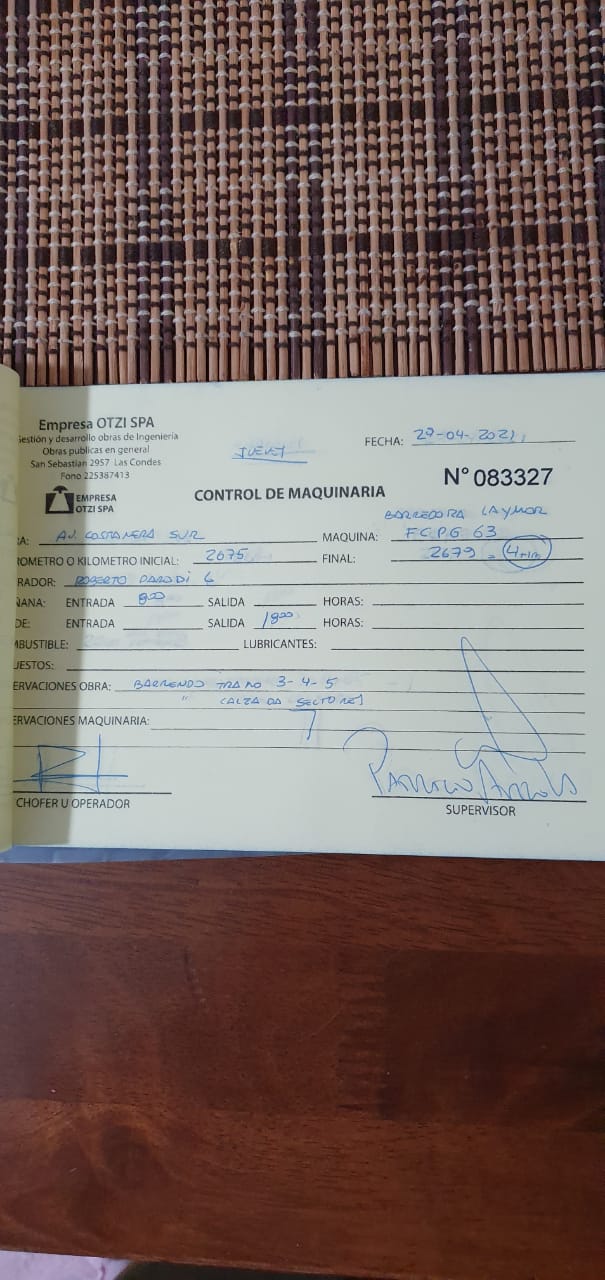 Empresa OTZI SPA
Gestión y desarrollo obras de Ingeniería
Obras publicas en general
San Sebastian 2957 Las Condes
Fono 225387413
EMPRESA
OTZI SPA
JUEVES
FECHA: 29-04-2021
N° 083327
CONTROL DE MAQUINARIA
BARREDORA LAYMOR
RA: AV. COSTANERA SUR MAQUINA: FCPG 63
ROMETRO O KILOMETRO INICIAL: 2675 FINAL: 2679
RADOR: ROBERTO PARODI G
ÑANA: ENTRADA 8:00 SALIDA HORAS:
DE: ENTRADA SALIDA 18:00 HORAS:
MBUSTIBLE: LUBRICANTES:
UESTOS:
ERVACIONES OBRA: BARRENDO TRAMO 3-4-5
" CALZADA SECTORES
ERVACIONES MAQUINARIA:
CHOFER U OPERADOR
SUPERVISOR